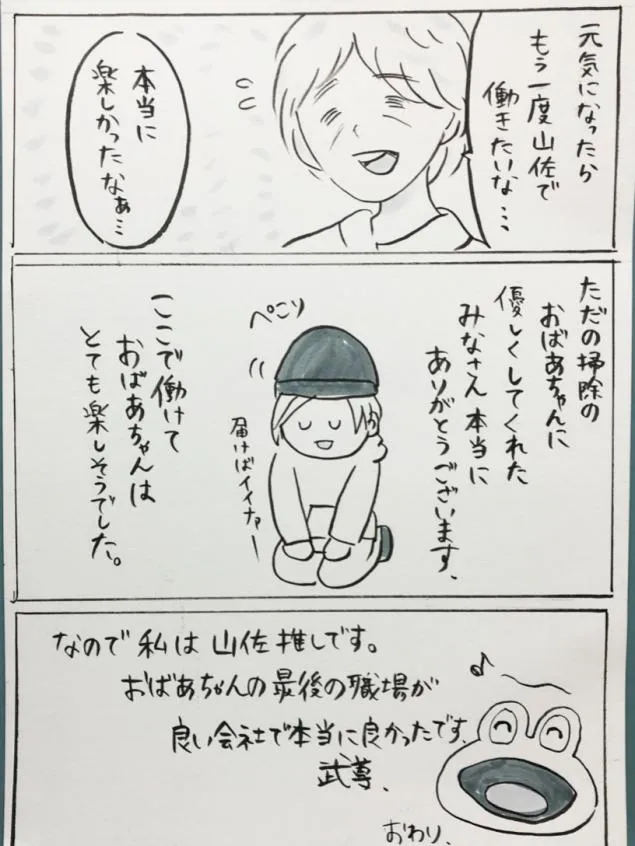 元気になったら
もう一度山佐で
働きたいな…
本当に
楽しかったなぁ…
ただの掃除の
おばあちゃんに
優しくしてくれた
みなさん本当に
ありがとうございます.
ぺこり
届けばイイナァー
ここで働けて
おばあちゃんは
とても楽しそうでした。
なので私は山佐推しです。
おばあちゃんの最後の職場が
良い会社で本当に良かったです.
武尊.
おわり.